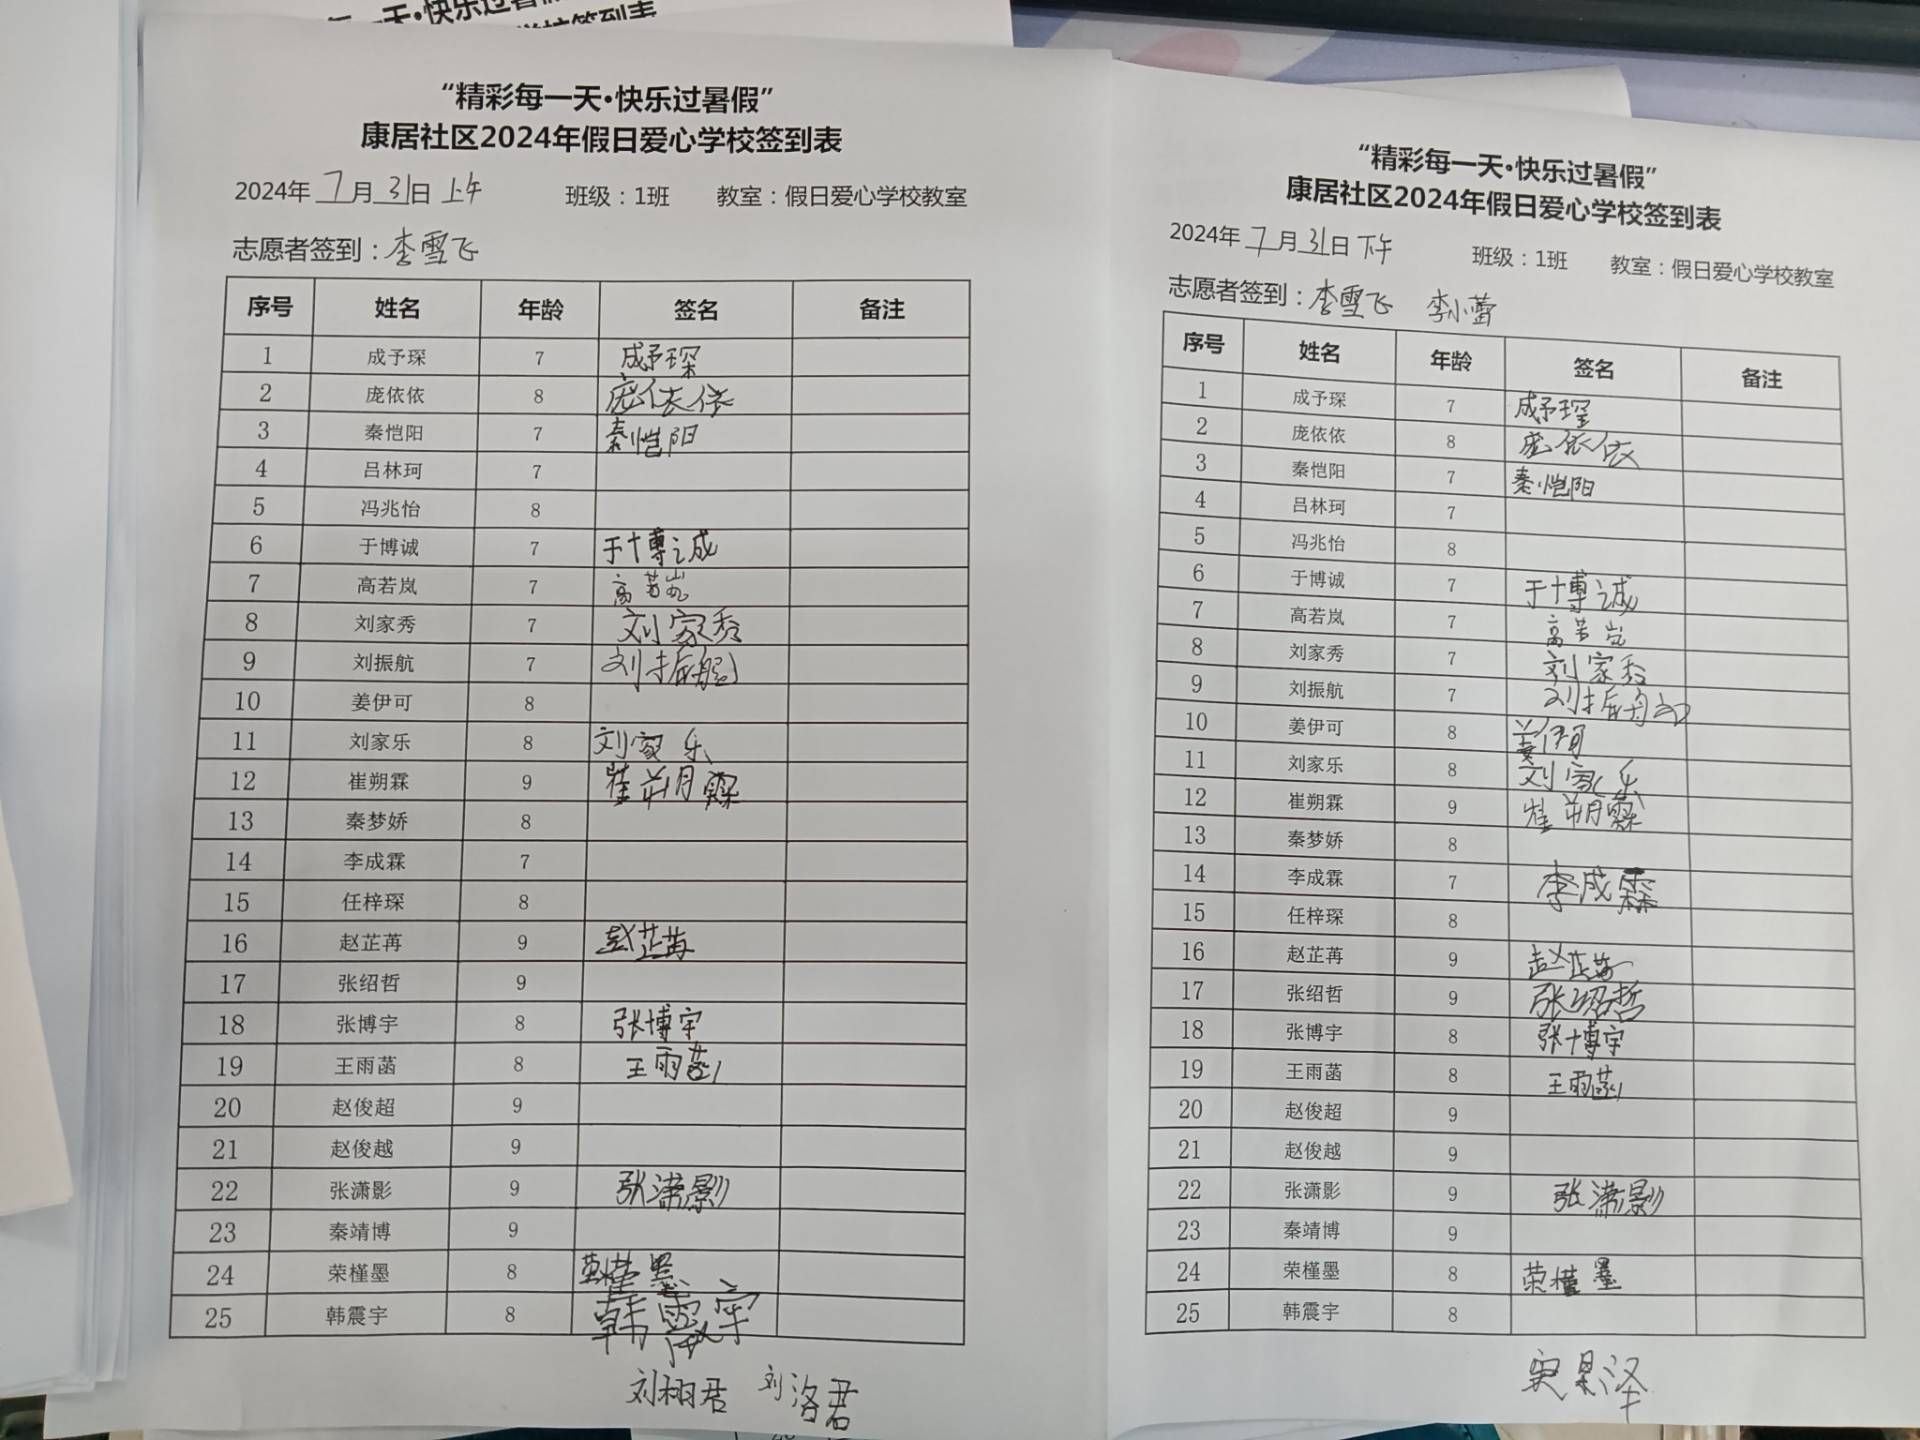 “精彩每一天•快乐过暑假”
康居社区2024年假日爱心学校签到表
2024年 7月31日 上午 班级：1班 教室：假日爱心学校教室
志愿者签到：李雪飞
序号 姓名 年龄 签名 备注
1 成予琛 7 成予琛
2 庞依依 8 庞依依
3 秦恺阳 7 秦恺阳
4 吕林珂 7
5 冯兆怡 8
6 于博诚 7 于博诚
7 高若岚 7 高若岚
8 刘家秀 7 刘家秀
9 刘振航 7 刘振航
10 姜伊可 8
11 刘家乐 8 刘家乐
12 崔朔霖 9 崔朔霖
13 秦梦娇 8
14 李成霖 7
15 任梓琛 8
16 赵芷苒 9 赵芷苒
17 张绍哲 9
18 张博宇 8 张博宇
19 王雨菡 8 王雨菡
20 赵俊超 9
21 赵俊越 9
22 张潇影 9 张潇影
23 秦靖博 9
24 荣槿墨 8 荣槿墨
25 韩震宇 8 韩震宇
刘栩君 刘洛君
“精彩每一天•快乐过暑假”
康居社区2024年假日爱心学校签到表
2024年 7月31日 下午 班级：1班 教室：假日爱心学校教室
志愿者签到：李雪飞 李小蕾
序号 姓名 年龄 签名 备注
1 成予琛 7 成予琛
2 庞依依 8 庞依依
3 秦恺阳 7 秦恺阳
4 吕林珂 7
5 冯兆怡 8
6 于博诚 7 于博诚
7 高若岚 7 高若岚
8 刘家秀 7 刘家秀
9 刘振航 7 刘振航
10 姜伊可 8 姜伊可
11 刘家乐 8 刘家乐
12 崔朔霖 9 崔朔霖
13 秦梦娇 8
14 李成霖 7 李成霖
15 任梓琛 8
16 赵芷苒 9 赵芷苒
17 张绍哲 9 张绍哲
18 张博宇 8 张博宇
19 王雨菡 8 王雨菡
20 赵俊超 9
21 赵俊越 9
22 张潇影 9 张潇影
23 秦靖博 9
24 荣槿墨 8 荣槿墨
25 韩震宇 8